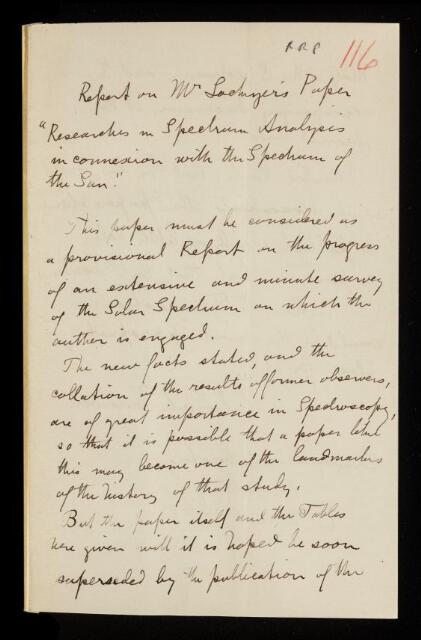 RRP
116
Report on Mr Lockyer's Paper
"Researches in Spectrum Analysis
in connexion with the Spectrum of
the Sun."
This paper must be considered as
a provisional Report on the progress
of an extensive and minute survey
of the Solar Spectrum on which the
author is engaged.
The new facts stated, and the
collation of the results of former observers,
are of great importance in Spectroscopy,
so that it is possible that a paper like
this may become one of the landmarks
of the history of that study.
But the paper itself and the Tables
here given will it is hoped be soon
superseded by the publication of the